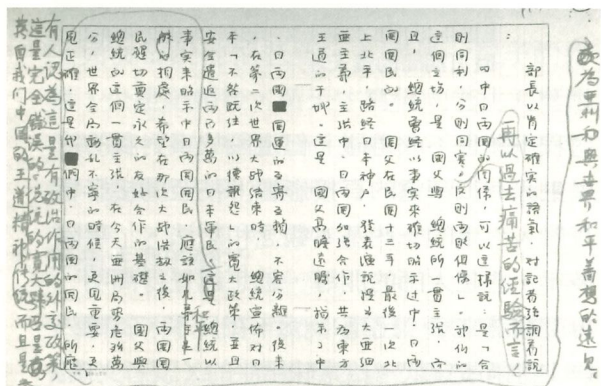 為亞州和與世界和平着想的遠見。
部長以肯定確實的語氣，對記者強調着說
再以過去痛苦的經驗而言，
中日兩國的關係，可以這樣說：是「合
則同利，分則同害。反則兩敗俱傷」。
這個主場，是 國父與 總統所一貫主張，而
且， 總統屢經以事實來確切昭示過中、日兩
國國民的。 國父在民國十三年，最後一次北
上北平，路經日本神戶，發表演說提倡大亞細
亞主義，主張中、日兩國合作，共為東方
王道的干城。這是 國父高瞻遠矚，指示了中
、日兩國國運的互寄互 不容分離。後來
，在第二次世界大戰結束時， 總統宣佈對日
本「不咎既往，以德報怨」的寬大政策，並且
安全遣返兩百多萬的日本軍民，這是 總統以
事實來昭示中日兩國國民，應該如兄弟手足一
般的相處，希望在那次大戰浩劫之後，兩國國
民確切奠定永久的友好合作的基礎。 國父與
總統的這個一貫主張，在今天亞洲局勢危殆萬
分，世界局動亂不寧的時候，更見重要，更
見正確，這是我們中、日兩國的國民所應
有人認為這是有政治作用的外交政策，
這是完全錯誤的，總統的寬大
自我們中國的王道精神而且是